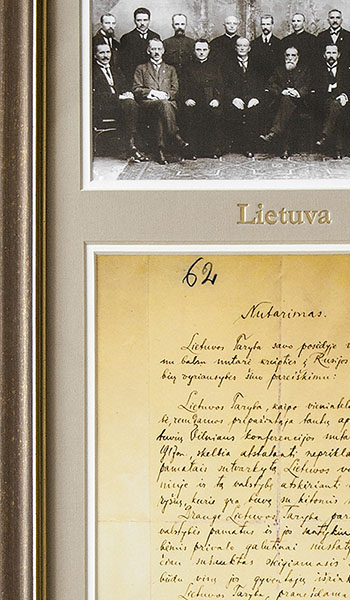 Lietuva
62
Nutarimas.
Lietuvos Taryba savo posėdyje v
nu balsu nutarė kreipties į Rusijos
kių vyriausybes šiuo pareiškimu:
Lietuvos Taryba, kaipo vienintelė
bė, remdamos pripažintąja tautų ap
tuvių Vilniaus konferencijos nuta
1917 m., skelbia atstatanti neprikla
pamatais sutvarkytą Lietuvos va
niuje ir tą valstybę atskirianti
ryšių, kurie yra buvę su kitomis
Drauge Lietuvos Taryba par
valstybės pamatus ir jos santykius
bėmis privalo galutinai nustaty
čiau susauktas steigiamasis
būdu visų jos gyventojų išrink
Lietuvos Taryba, pranešdama